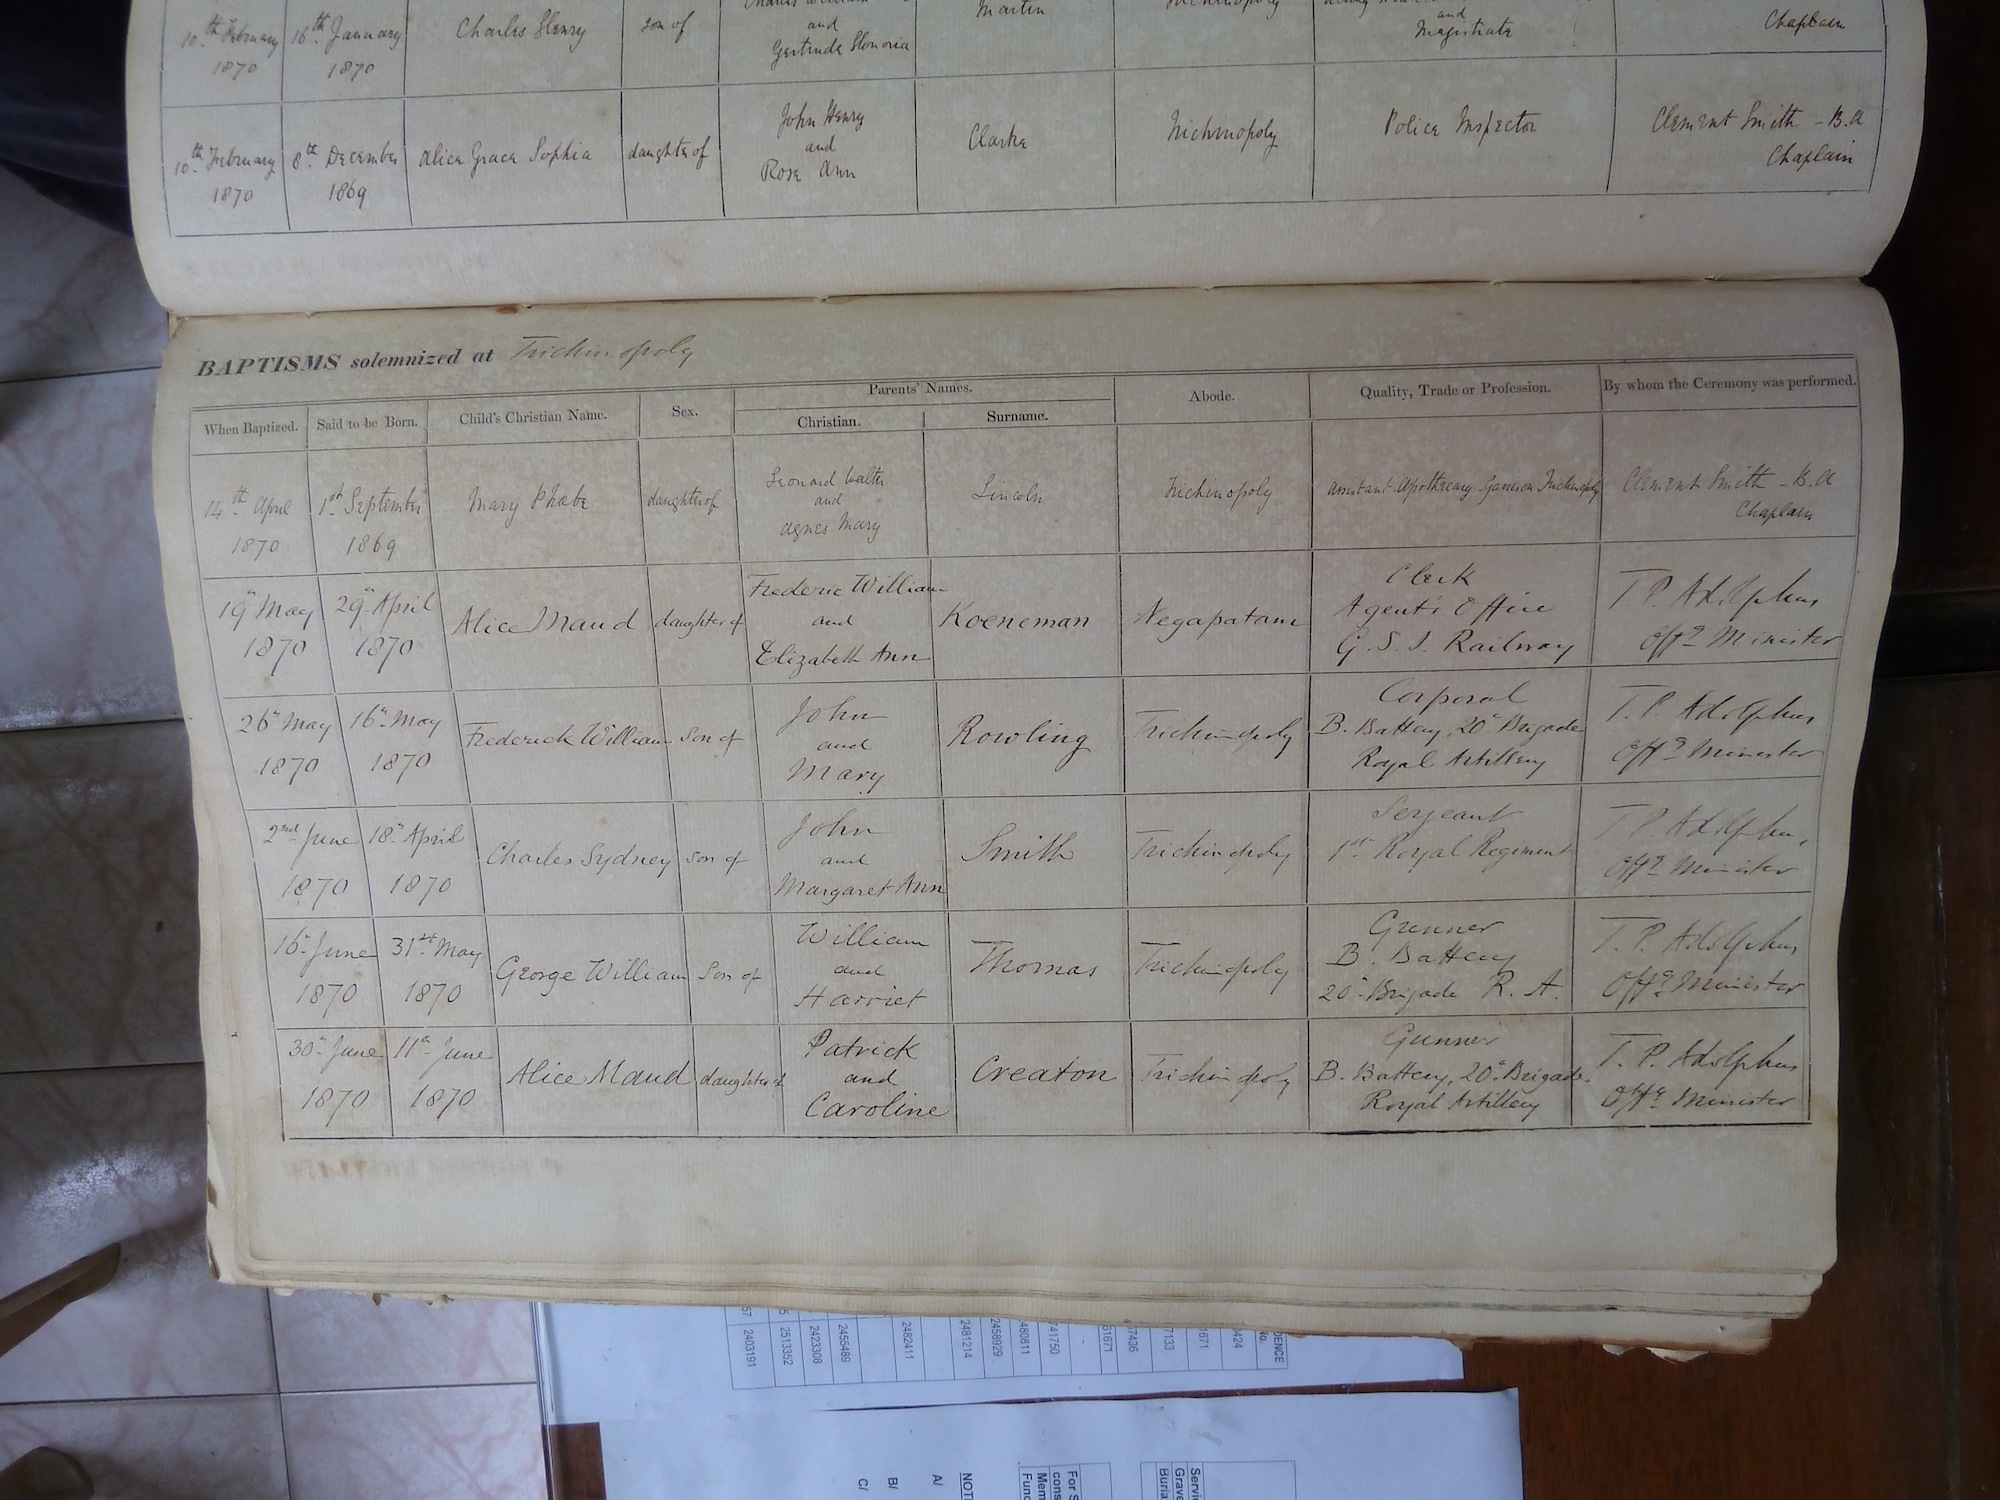 10th February 1870
16th January 1870
Charles Henry
son of
and
Gertrude Honoria
Martin
Trichinopoly
and
Magistrate
Chaplain
10th February 1870
8th December 1869
Alice Grace Sophia
daughter of
John Henry
and
Rose Ann
Clarke
Trichinopoly
Police Inspector
Clement Smith - B.A
Chaplain
BAPTISMS solemnized at Trichinopoly
When Baptized.
Said to be Born.
Child's Christian Name.
Sex.
Parents' Names.
Christian.
Surname.
Abode.
Quality, Trade or Profession.
By whom the Ceremony was performed.
14th April 1870
1st September 1869
Mary Phœbe
daughter of
Leonard Walter
and
Agnes Mary
Lincoln
Trichinopoly
Assistant Apothecary Garrison Trichinopoly
Clement Smith - B.A
Chaplain
19th May 1870
29th April 1870
Alice Maud
daughter of
Frederic William
and
Elizabeth Ann
Koeneman
Negapatam
Clerk
Agent's Office
G. S. I. Railway
T. P. Adolphus
Offg Minister
26th May 1870
16th May 1870
Frederick William
Son of
John
and
Mary
Rowling
Trichinopoly
Corporal
B. Battery, 20th Brigade
Royal Artillery
T. P. Adolphus
Offg Minister
2nd June 1870
18th April 1870
Charles Sydney
Son of
John
and
Margaret Ann
Smith
Trichinopoly
Serjeant
1st Royal Regiment
T. P. Adolphus
Offg Minister
16th June 1870
31st May 1870
George William
Son of
William
and
Harriet
Thomas
Trichinopoly
Gunner
B. Battery
20th Brigade R. A.
T. P. Adolphus
Offg Minister
30th June 1870
11th June 1870
Alice Maud
daughter of
Patrick
and
Caroline
Creaton
Trichinopoly
Gunner
B. Battery, 20th Brigade
Royal Artillery
T. P. Adolphus
Offg Minister
2403191
2513352
2423308
2455489
2482411
2481214
2458929
480811
41750
51671
7436
7133
1671
424
DENCE
No.
C/
B/
A/
NOT
For S
cons
Mem
Fund
Servi
Grav
Buria